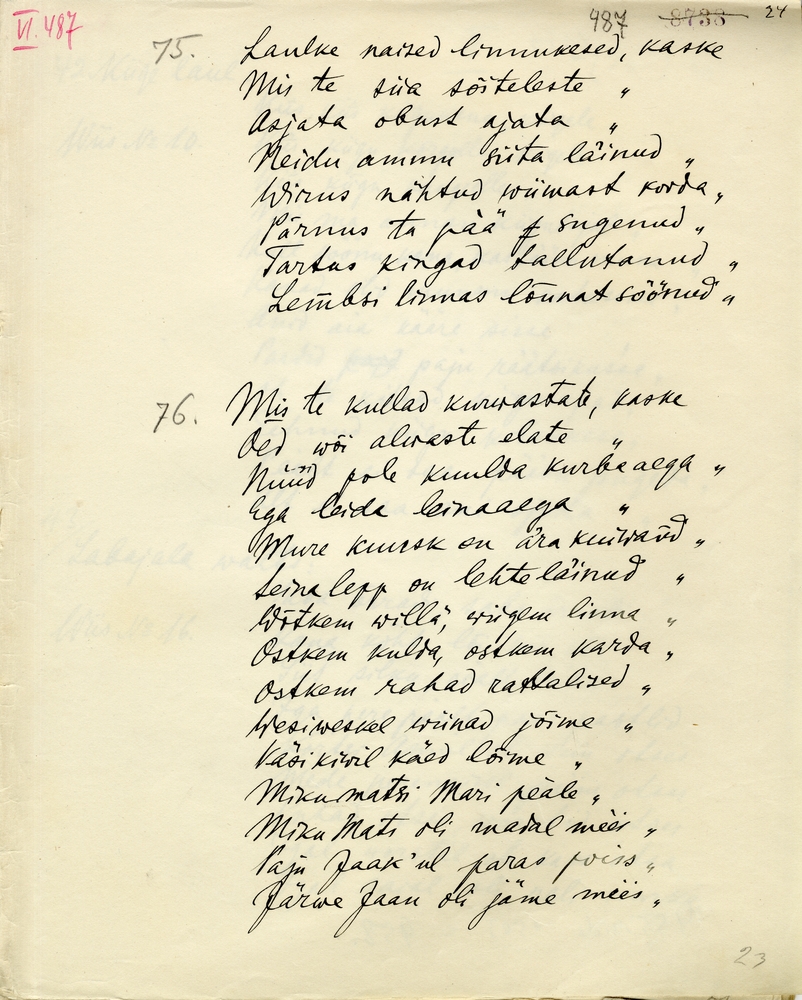 VI. 487
487 8733 24
75. Laulke naised linnukesed, kaske
Mis te siia sõiteleste "
Asjata obust ajata "
Neidu ammu siita läinud "
Wirus nähtud wiimast korda "
Pärnus ta pää sugenud "
Tartus kingad tallutanud "
Lembsi linnas lõunat söönud "
76. Mis te kullad kurwastate, kaske
Õed wõi alwaste elate "
Nüüd pole kuulda kurbaaega "
Ega leida leinaaega "
Mure kuusk on ära kuiwand "
Leina lepp on lehte läinud "
Wõtkem willä, wiigem linna "
Ostkem kulda, ostkem karda "
Ostkem rahad rattalised "
Wesiweskel wiinad jõime "
Käsikiwil käed lõime "
Miku matsi Mari peale "
Miku Mats oli madal mees "
Paju Jaak'ul paras poiss "
Järwe Jaan oli jäme mees "
23